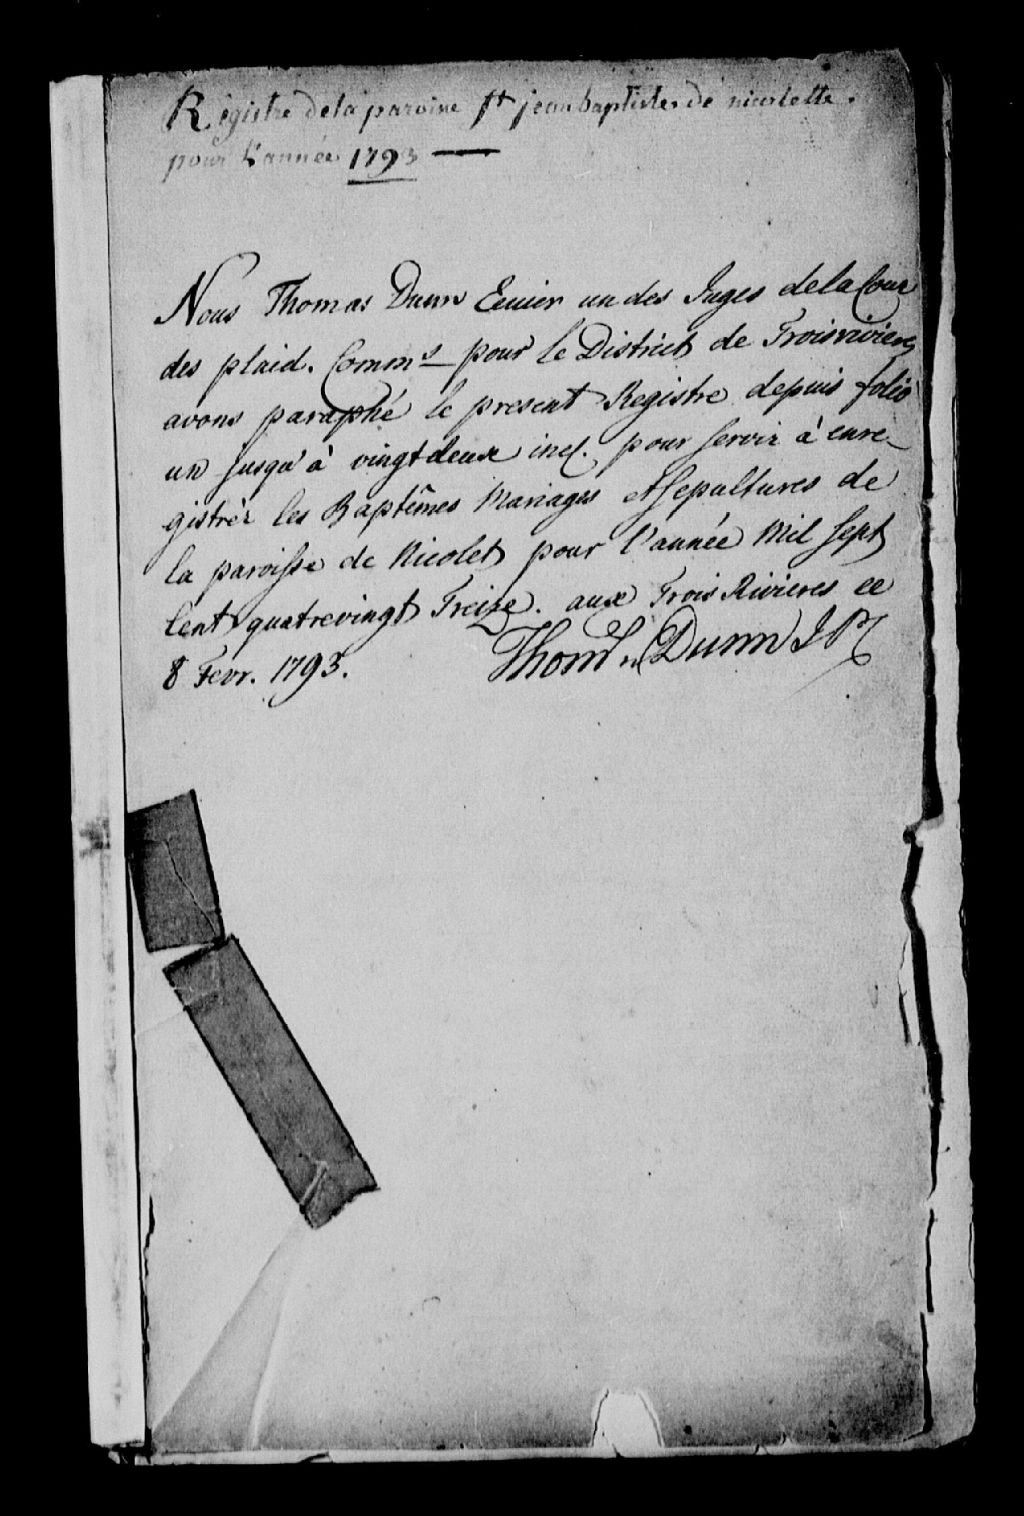 Régistre dela paroine St jean baptiste de nicolette.
pour l'année 1793 —
Nous Thomas Dunn Ecuier un des Juges dela Cour
des plaid. Comm.s pour le District de Troisrivieres
avons paraphé le present Registre depuis folio
un jusqu'à vingtdeux incl. pour servir à enre-
gistrer les Baptêmes Mariages et Sepultures de
la paroisse de Nicolet pour l'année Mil Sept
Cent quatrevingt Treize. aux Trois Rivieres ce
8 Fevr. 1793. Thom Dunn